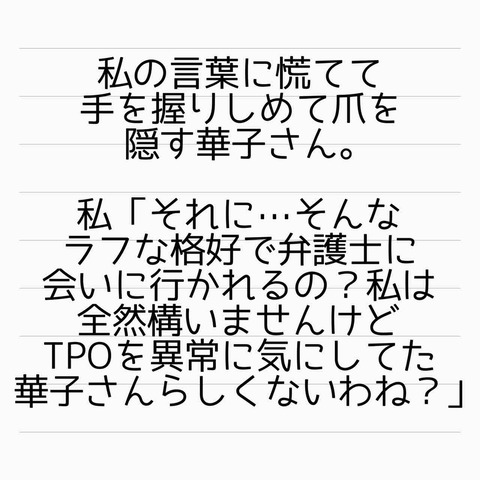 私の言葉に慌てて
手を握りしめて爪を
隠す華子さん。
私「それに…そんな
ラフな格好で弁護士に
会いに行かれるの？私は
全然構いませんけど
TPOを異常に気にしてた
華子さんらしくないわね？」